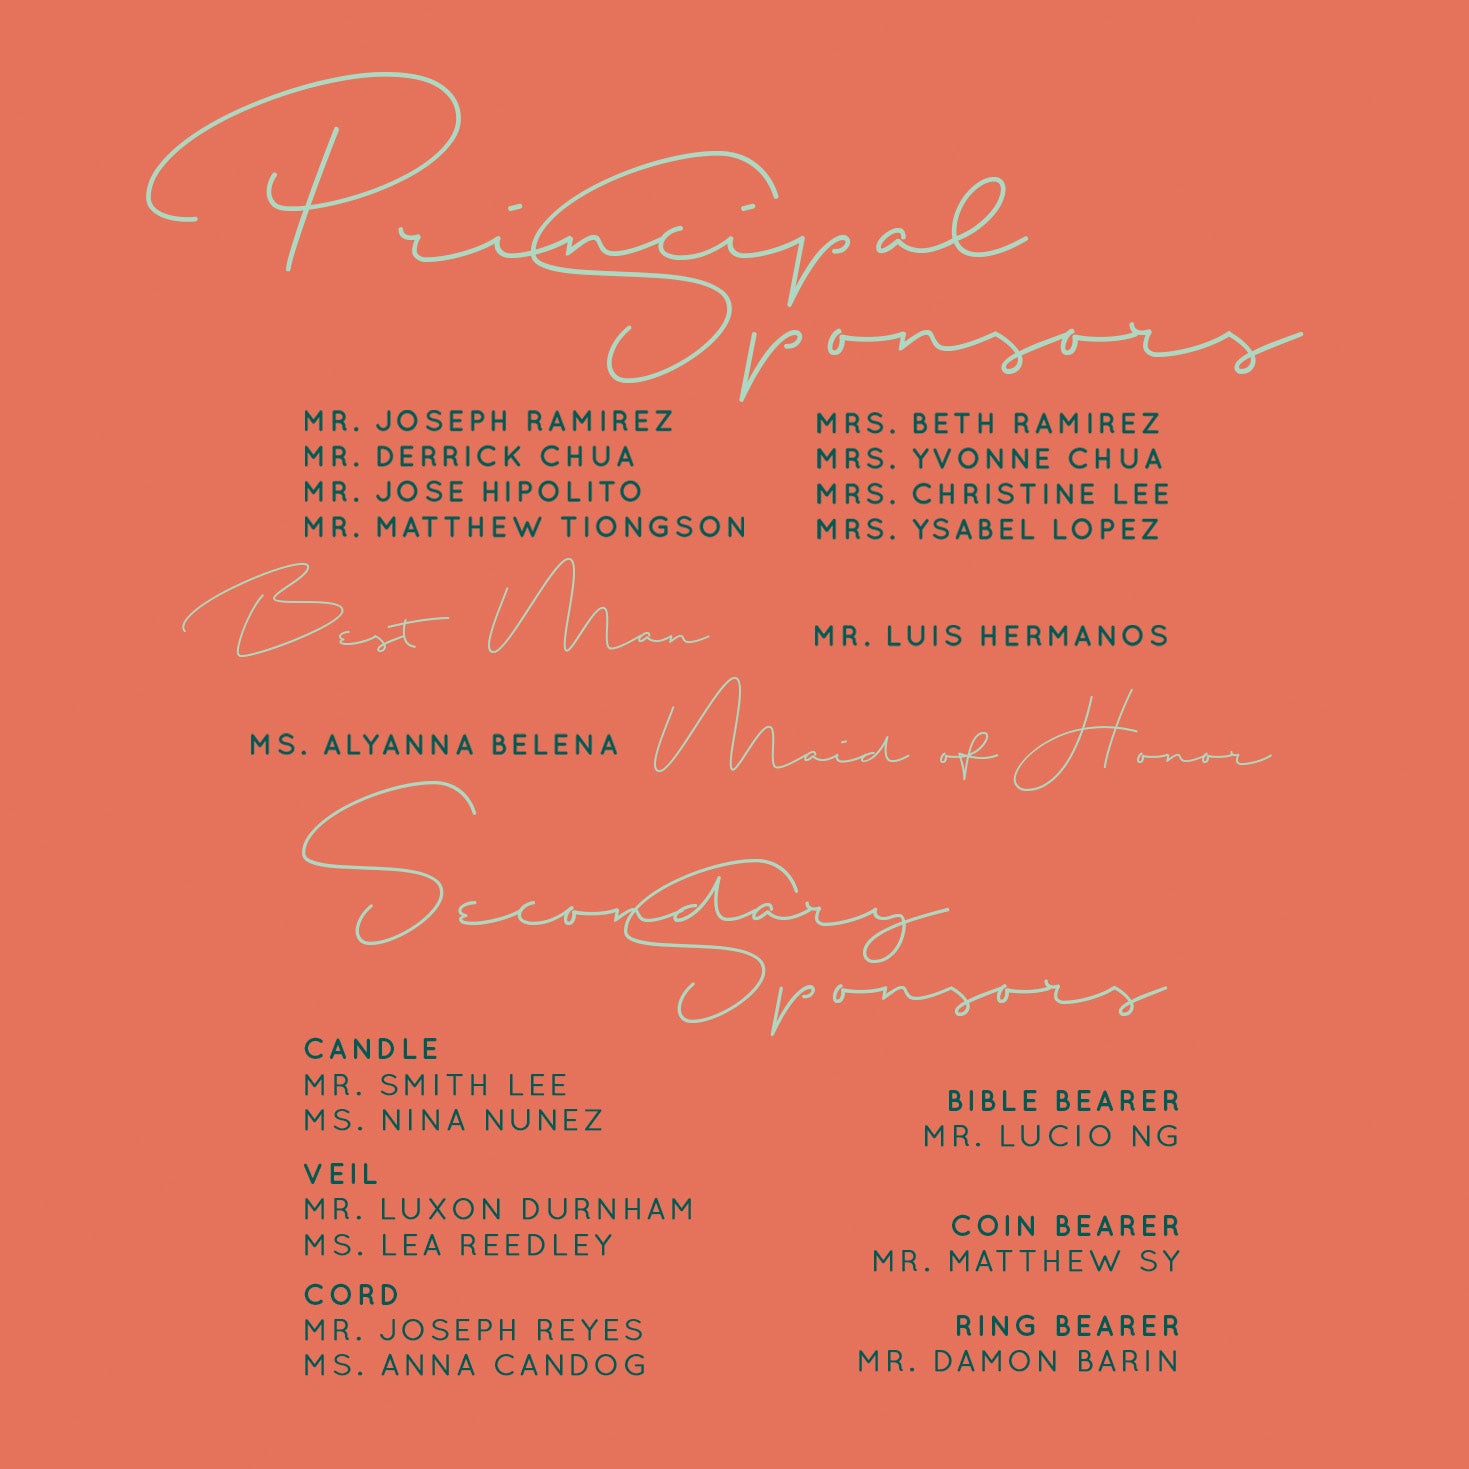 Principal
Sponsors
MR. JOSEPH RAMIREZ
MR. DERRICK CHUA
MR. JOSE HIPOLITO
MR. MATTHEW TIONGSON
MRS. BETH RAMIREZ
MRS. YVONNE CHUA
MRS. CHRISTINE LEE
MRS. YSABEL LOPEZ
Best Man
MR. LUIS HERMANOS
MS. ALYANNA BELENA
Maid of Honor
Secondary
Sponsors
CANDLE
MR. SMITH LEE
MS. NINA NUNEZ
VEIL
MR. LUXON DURNHAM
MS. LEA REEDLEY
CORD
MR. JOSEPH REYES
MS. ANNA CANDOG
BIBLE BEARER
MR. LUCIO NG
COIN BEARER
MR. MATTHEW SY
RING BEARER
MR. DAMON BARIN